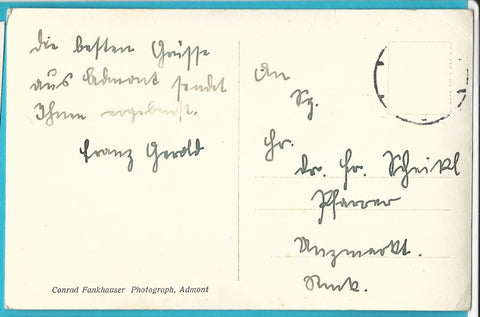 die besten Grüsse
aus Admont sendet
Ihnen ergebenst.
Franz Gerold
An
Hr.
Dr. Fr. Scheikl
Pfarrer
Unzmarkt.
Conrad Fankhauser Photograph, Admont